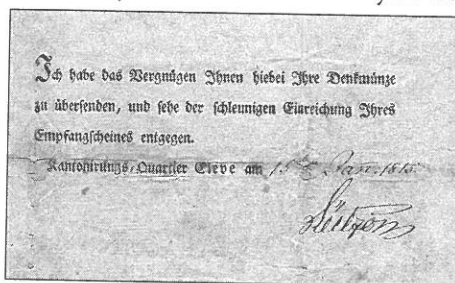 Ich habe das Vergnügen Ihnen hiebei Ihre Denkmünze
zu übersenden, und sehe der schleunigen Einreichung Ihres
Empfangscheines entgegen.
Kantonirungs-Quartier Cleve am 15t Jan. 1815.
Lützow